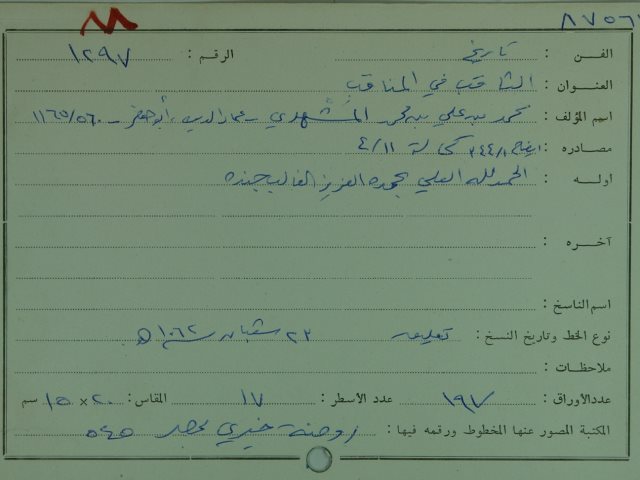 ٨٧٥٦
الفـــن : تاريخ الرقم : ١٢٩٧
العنـوان : الثاقب في المناقب
اسم المؤلف : محمد بن علي بن محمد المَشْهدي - عماد الدين، أبو جعفر - ٥٦٠/١١٦٥
مصـادره : ٣٤٤/١ كحالة ٤/١١
اولــه : الحمد لله العلي بمجده العزيز الغالب بجنده
آخـره :
اسم الناسخ :
نوع الخط وتاريخ النسخ : تعليق ٢٣ شعبان سنة ١٠٦٢ هـ
ملاحظـات :
عدد الأوراق : ١٩٧ عدد الأسطر : ١٧ المقاس : ٢٠ × ١٥ سم
المكتبة المصور عنها المخطوط ورقمه فيها : روضة خيري بمصر ٥٤٥